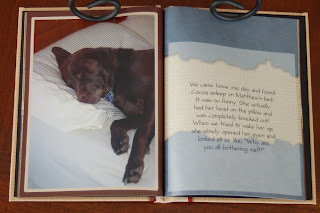 We came home one day and found
Cocoa asleep on Matthew's bed.
It was so funny. She actually
had her head on the pillow and
was completely knocked out!
When we tried to wake her up
she slowly opened her eyes and
looked at us like, "Why are
you all bothering me?!"